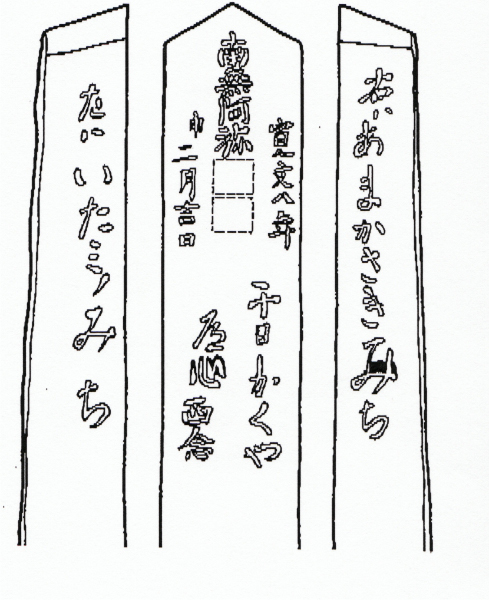 右ハあまかさきみち
寛文八年
南無阿弥
申二月吉日
千日かくや
道心西念
左ハいたミみち